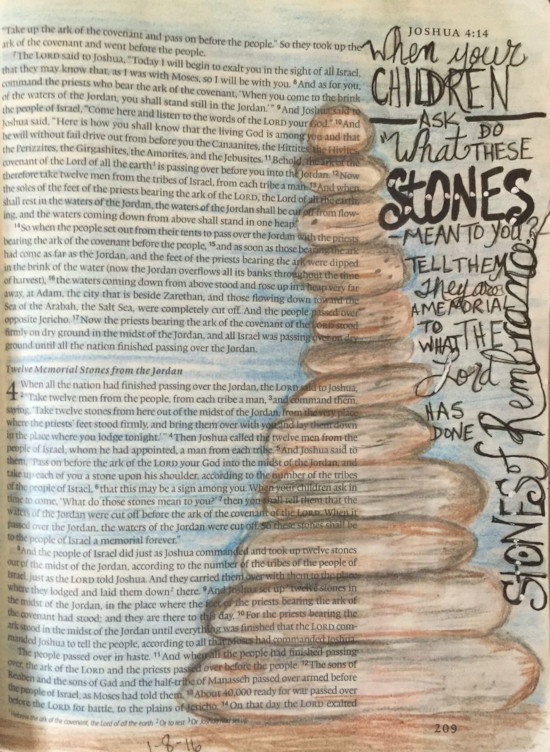 "Take up the ark of the covenant and pass on before the people." So they took up the
ark of the covenant and went before the people.
7The LORD said to Joshua, "Today I will begin to exalt you in the sight of all Israel,
that they may know that, as I was with Moses, so I will be with you. 8And as for you,
command the priests who bear the ark of the covenant, 'When you come to the brink
of the waters of the Jordan, you shall stand still in the Jordan.'" 9And Joshua said to
the people of Israel, "Come here and listen to the words of the LORD your God." 10And
Joshua said, "Here is how you shall know that the living God is among you and that
he will without fail drive out from before you the Canaanites, the Hittites, the Hivites,
the Perizzites, the Girgashites, the Amorites, and the Jebusites. 11Behold, the ark of the
covenant of the Lord of all the earth1 is passing over before you into the Jordan. 12Now
therefore take twelve men from the tribes of Israel, from each tribe a man. 13And when
the soles of the feet of the priests bearing the ark of the LORD, the Lord of all the earth,
shall rest in the waters of the Jordan, the waters of the Jordan shall be cut off from flow-
ing, and the waters coming down from above shall stand in one heap."
14So when the people set out from their tents to pass over the Jordan with the priests
bearing the ark of the covenant before the people, 15and as soon as those bearing the ark
had come as far as the Jordan, and the feet of the priests bearing the ark were dipped
in the brink of the water (now the Jordan overflows all its banks throughout the time
of harvest), 16the waters coming down from above stood and rose up in a heap very far
away, at Adam, the city that is beside Zarethan, and those flowing down toward the
Sea of the Arabah, the Salt Sea, were completely cut off. And the people passed over
opposite Jericho. 17Now the priests bearing the ark of the covenant of the LORD stood
firmly on dry ground in the midst of the Jordan, and all Israel was passing over on dry
ground until all the nation finished passing over the Jordan.
Twelve Memorial Stones from the Jordan
4 When all the nation had finished passing over the Jordan, the LORD said to Joshua,
2"Take twelve men from the people, from each tribe a man, 3and command them,
saying, 'Take twelve stones from here out of the midst of the Jordan, from the very place
where the priests' feet stood firmly, and bring them over with you and lay them down
in the place where you lodge tonight.'" 4Then Joshua called the twelve men from the
people of Israel, whom he had appointed, a man from each tribe. 5And Joshua said to
them, "Pass on before the ark of the LORD your God into the midst of the Jordan, and
take up each of you a stone upon his shoulder, according to the number of the tribes
of the people of Israel, 6that this may be a sign among you. When your children ask in
time to come, 'What do those stones mean to you?' 7then you shall tell them that the
waters of the Jordan were cut off before the ark of the covenant of the LORD. When it
passed over the Jordan, the waters of the Jordan were cut off. So these stones shall be
to the people of Israel a memorial forever."
8And the people of Israel did just as Joshua commanded and took up twelve stones
out of the midst of the Jordan, according to the number of the tribes of the people of
Israel, just as the LORD told Joshua. And they carried them over with them to the place
where they lodged and laid them down2 there. 9And Joshua set up3 twelve stones in
the midst of the Jordan, in the place where the feet of the priests bearing the ark of
the covenant had stood; and they are there to this day. 10For the priests bearing the
ark stood in the midst of the Jordan until everything was finished that the LORD com-
manded Joshua to tell the people, according to all that Moses had commanded Joshua.
The people passed over in haste. 11And when all the people had finished passing
over, the ark of the LORD and the priests passed over before the people. 12The sons of
Reuben and the sons of Gad and the half-tribe of Manasseh passed over armed before
the people of Israel, as Moses had told them. 13About 40,000 ready for war passed over
before the LORD for battle, to the plains of Jericho. 14On that day the LORD exalted
the ark of the covenant, the Lord of all the earth 2 Or to rest 3 Or Joshua
1-8-16
209
JOSHUA 4:14
When your
CHILDREN
ASK
"What DO
THESE
STONES
MEAN TO you?"
TELL THEM
They are
A MEMORIAL
TO
WHAT THE
Lord
HAS
DONE
STONES of Remembrance